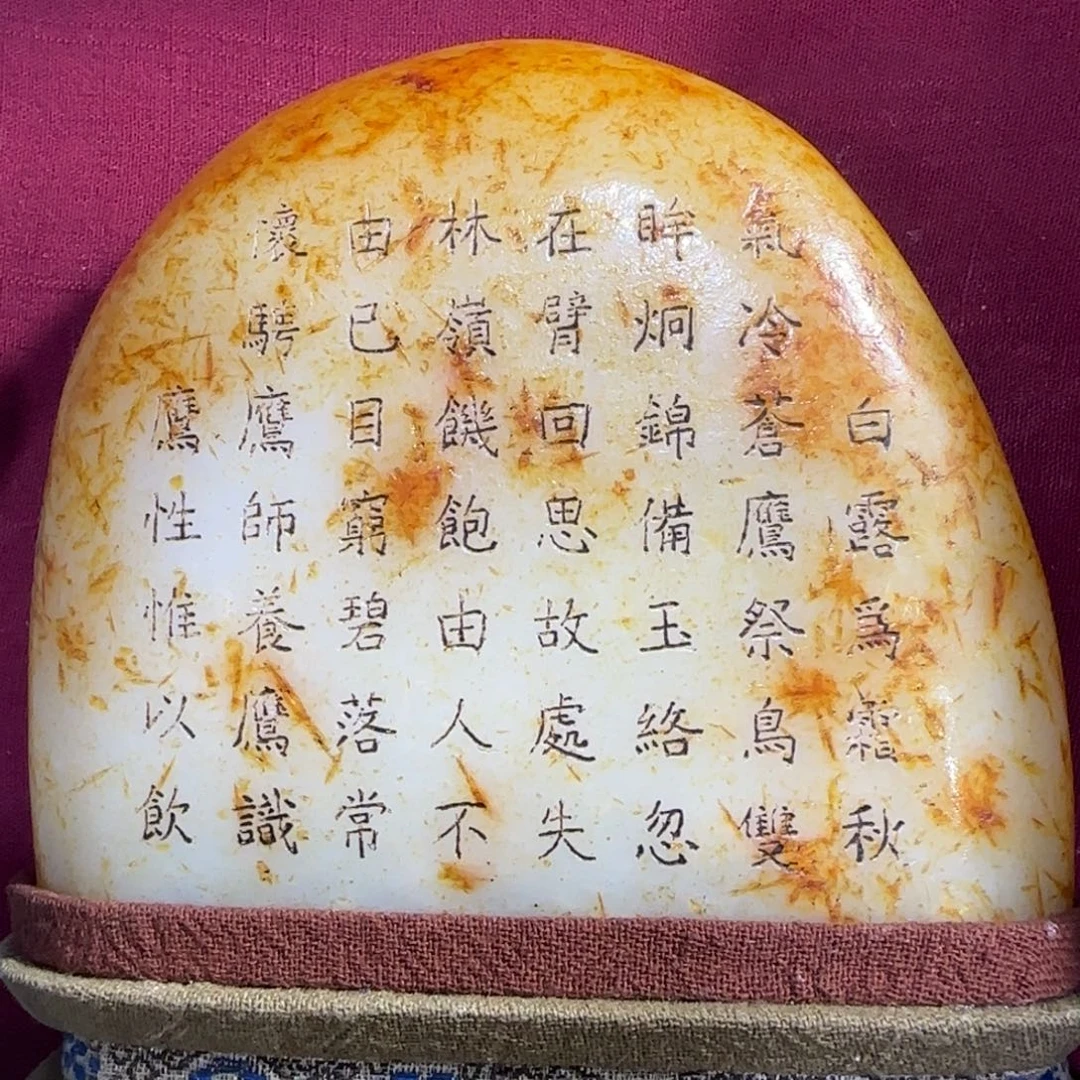 白露爲霜秋
氣冷蒼鷹祭鳥雙
眸炯錦備玉絡忽
在臂回思故處失
林嶺饑飽由人不
由已目窮碧落常
懷騁鷹師養鷹識
鷹性惟以飲